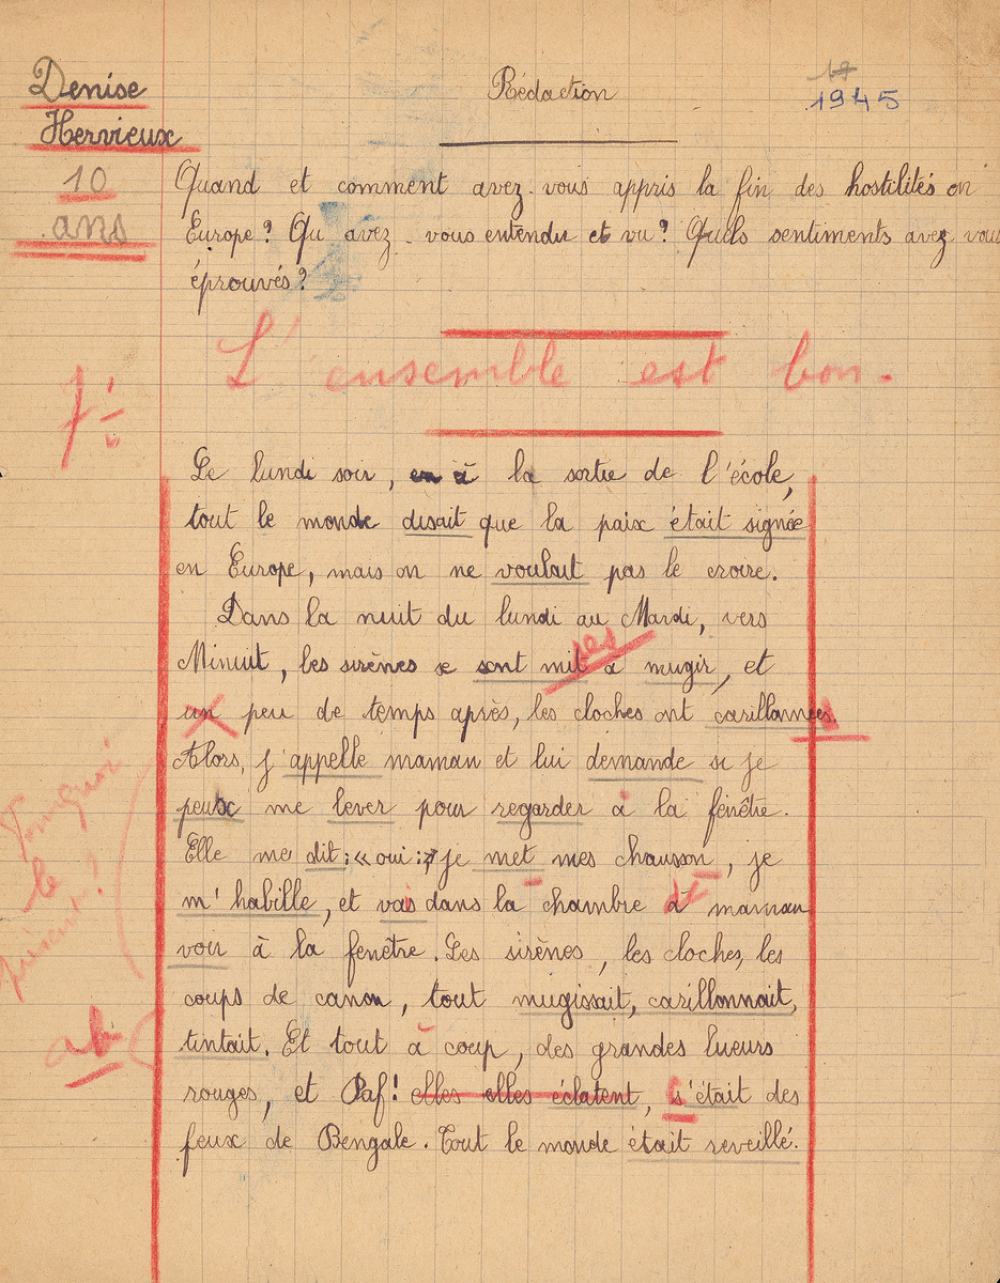 Denise
Hervieux
10
ans
Rédaction
17
1945
Quand et comment avez-vous appris la fin des hostilités en
Europe? Qu'avez-vous entendu et vu? Quels sentiments avez vous
éprouvés?
L'ensemble est bon.
Le lundi soir, en à la sortie de l'école,
tout le monde disait que la paix était signée
en Europe, mais on ne voulait pas le croire.
Dans la nuit du lundi au Mardi, vers
Minuit, les sirènes se sont mit ses à mugir, et
un peu de temps après, les cloches ont carillonnées.
Alors, j'appelle maman et lui demande si je
peux me lever pour regarder à la fenêtre.
Elle me dit: «oui:» je met mes chausson, je
m'habille, et vais dans la chambre à de maman
voir à la fenêtre. Les sirènes, les cloches, les
coups de canon, tout mugissait, carillonnait,
tintait. Et tout à coup, des grandes lueurs
rouges, et Paf! elles elles éclatent, s'était des
feux de Bengale. Tout le monde était reveillé.
Pourquoi
le
présent?
ab